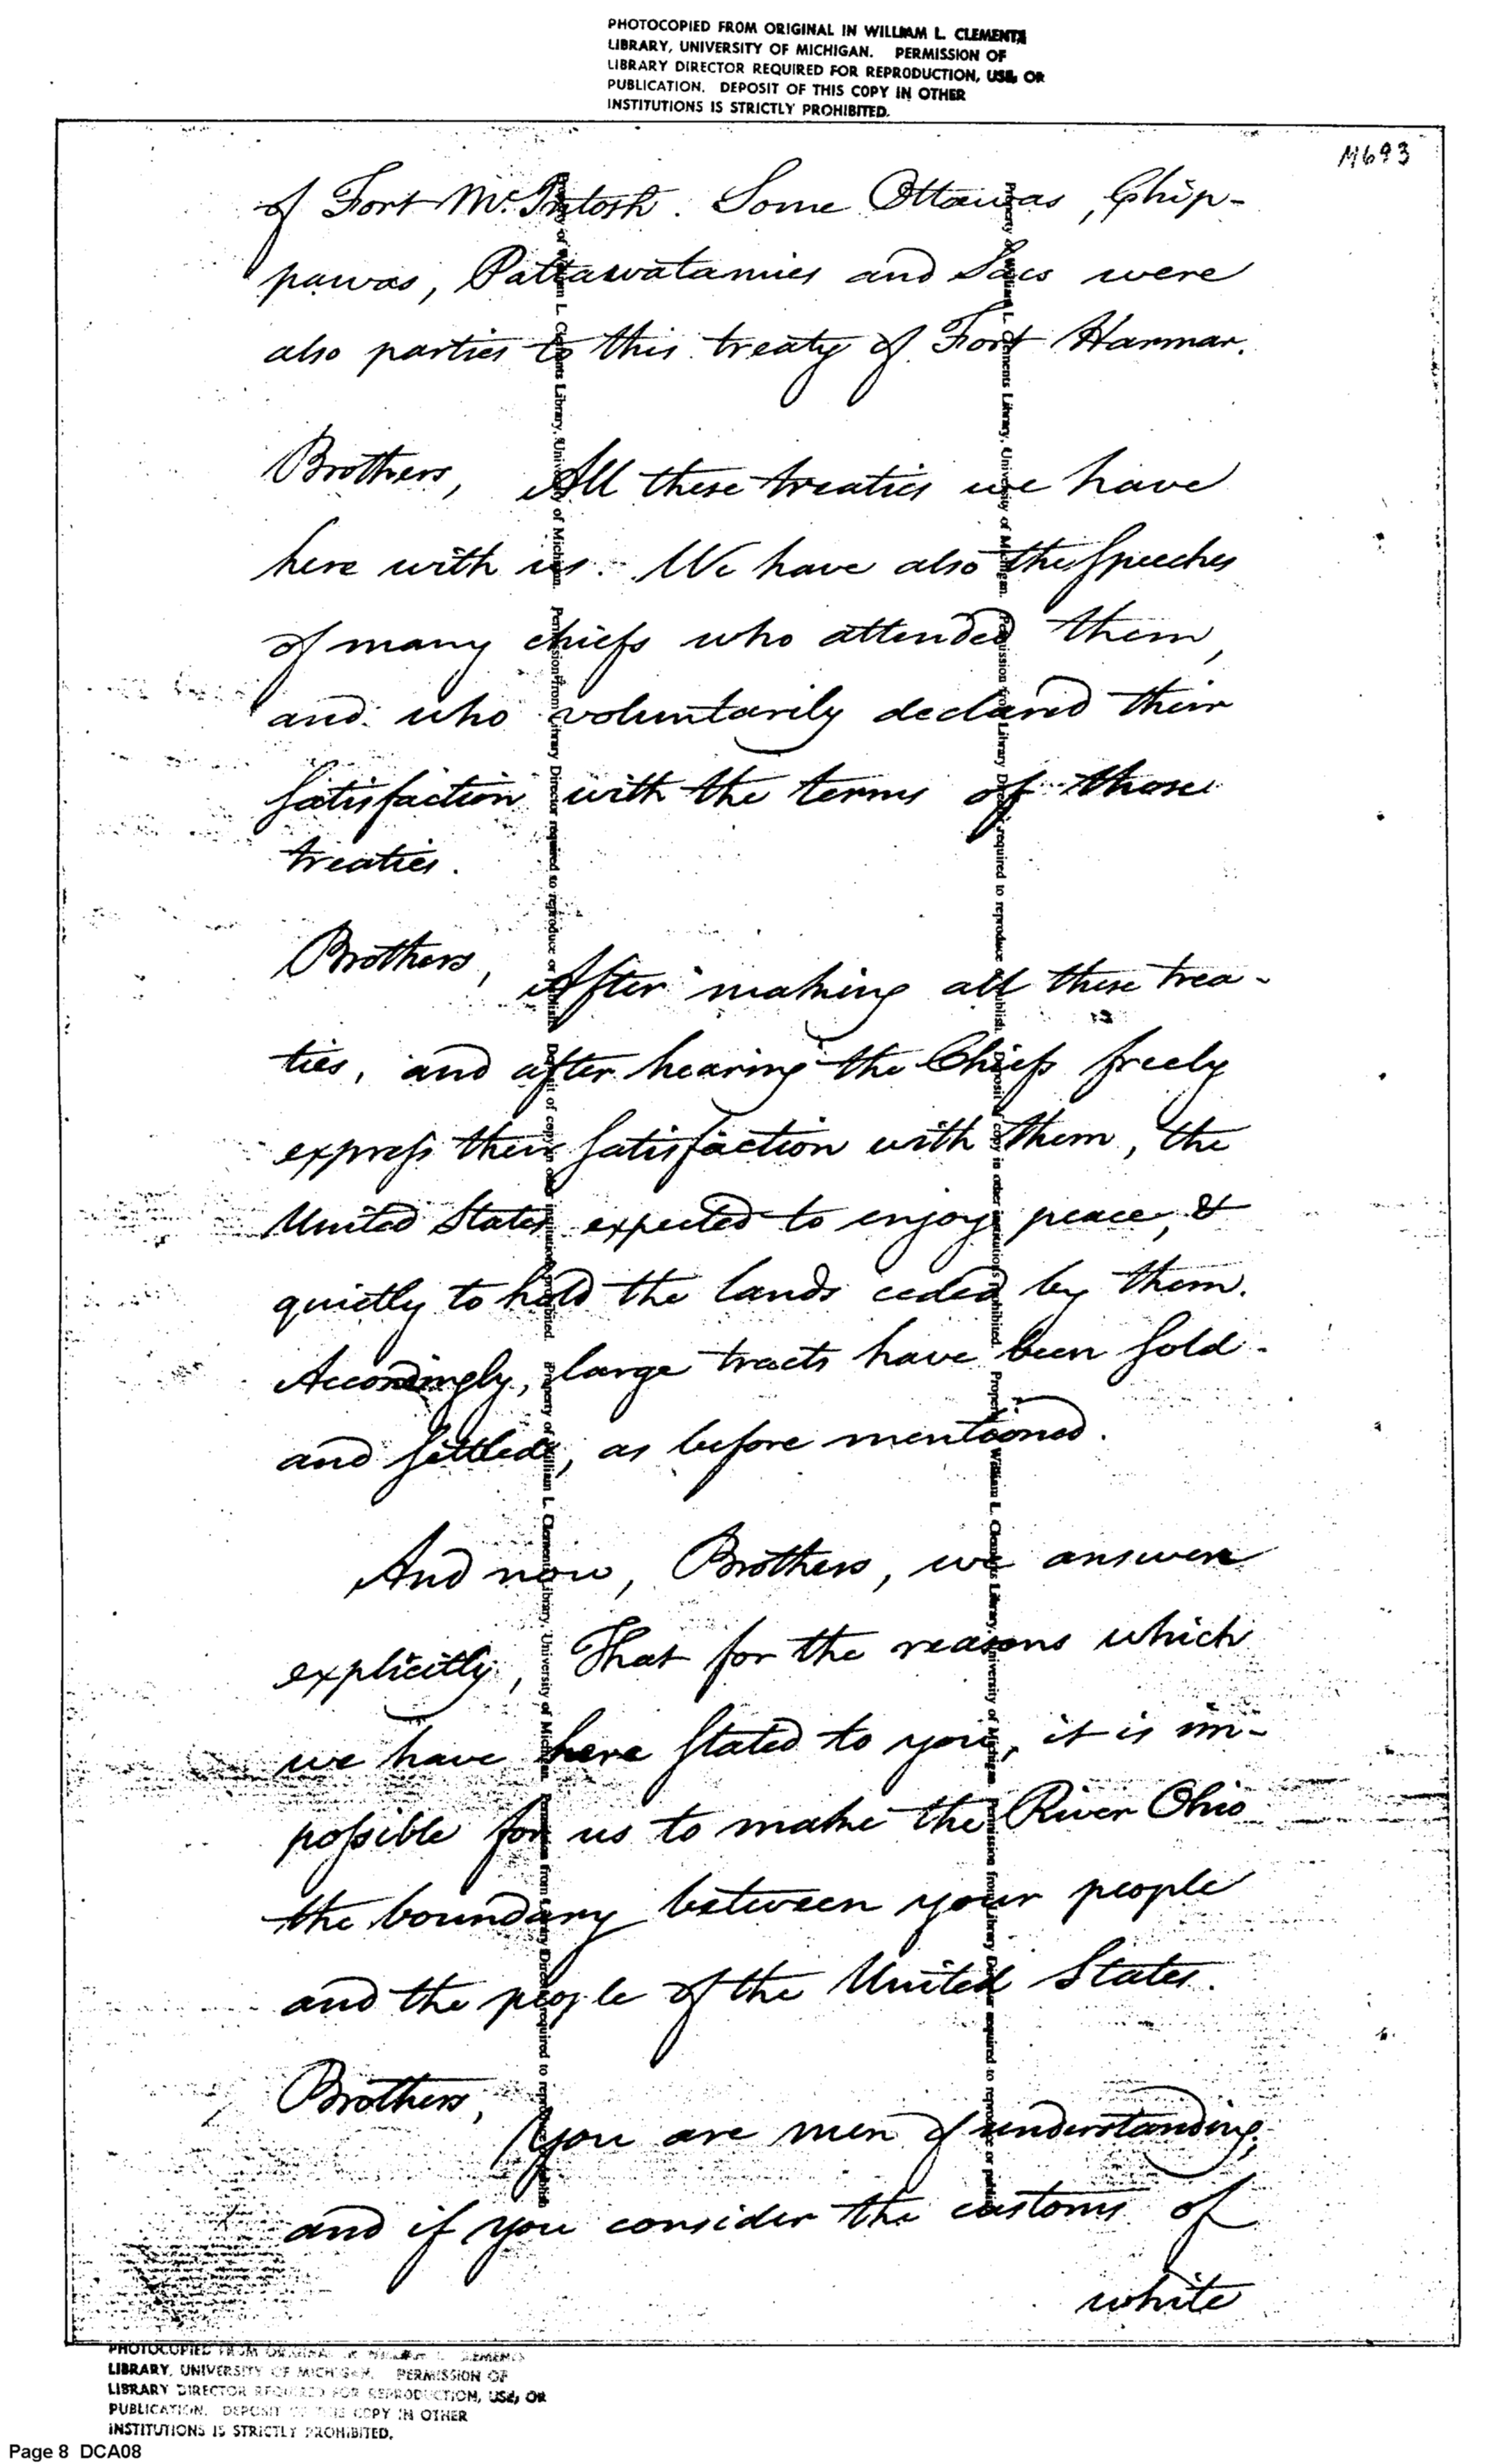 PHOTOCOPIED FROM ORIGINAL IN WILLIAM L. CLEMENTS
LIBRARY, UNIVERSITY OF MICHIGAN. PERMISSION OF
LIBRARY DIRECTOR REQUIRED FOR REPRODUCTION, USE, OR
PUBLICATION. DEPOSIT OF THIS COPY IN OTHER
INSTITUTIONS IS STRICTLY PROHIBITED.
M693
of Fort McIntosh. Some Ottawas, Chip-
pawas, Pattawatamies and Sacs were
also parties to this treaty of Fort Harmar.
Brothers, All these treaties we have
here with us. We have also the Speeches
of many chiefs who attended them,
and who voluntarily declared their
Satisfaction with the terms of those
treaties.
Brothers, After making all these trea-
ties, and after hearing the Chiefs freely
expreſs their Satisfaction with them, the
United States expected to enjoy peace, &
quietly to hold the lands ceded by them.
Accordingly, large tracts have been Sold
and Settled, as before mentioned.
And now, Brothers, we answer
explicitly, That for the reasons which
we have here Stated to you, it is im-
poſsible for us to make the River Ohio
the boundary between your people
and the people of the United States.
Brothers, You are men of understanding,
and if you consider the customs of
white
Property of William L. Clements Library, University of Michigan. Permission from Library Director required to reproduce or publish. Deposit of copy in other institutions prohibited. Property of William L. Clements Library, University of Michigan. Permission from Library Director required to reproduce or publish
Property of William L. Clements Library, University of Michigan. Permission from Library Director required to reproduce or publish. Deposit of copy in other institutions prohibited. Property of William L. Clements Library, University of Michigan. Permission from Library Director required to reproduce or publish
PHOTOCOPIED FROM ORIGINAL IN WILLIAM L. CLEMENTS
LIBRARY, UNIVERSITY OF MICHIGAN. PERMISSION OF
LIBRARY DIRECTOR REQUIRED FOR REPRODUCTION, USE, OR
PUBLICATION. DEPOSIT OF THIS COPY IN OTHER
INSTITUTIONS IS STRICTLY PROHIBITED.
Page 8 DCA08